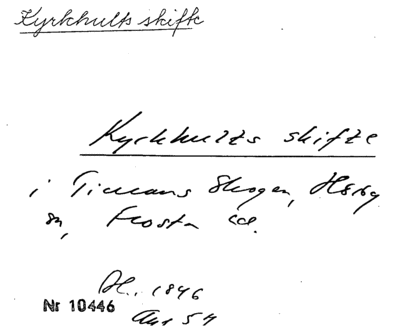 Kyrkhults skifte
Kyrkhults skifte
i Timans Skogen, Hörby
sn, Frosta hd.
Nr 10446
1846
54